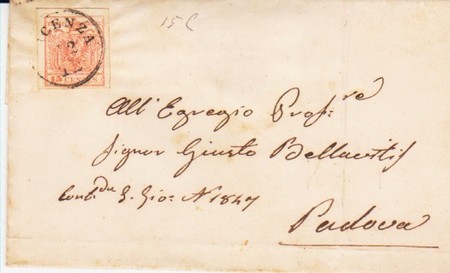 15 C
CENZA
12
12
All' Egregio Prof.re
Signor Giusto Bellavitis
Cont.da S. Gio: N 1847
Padova